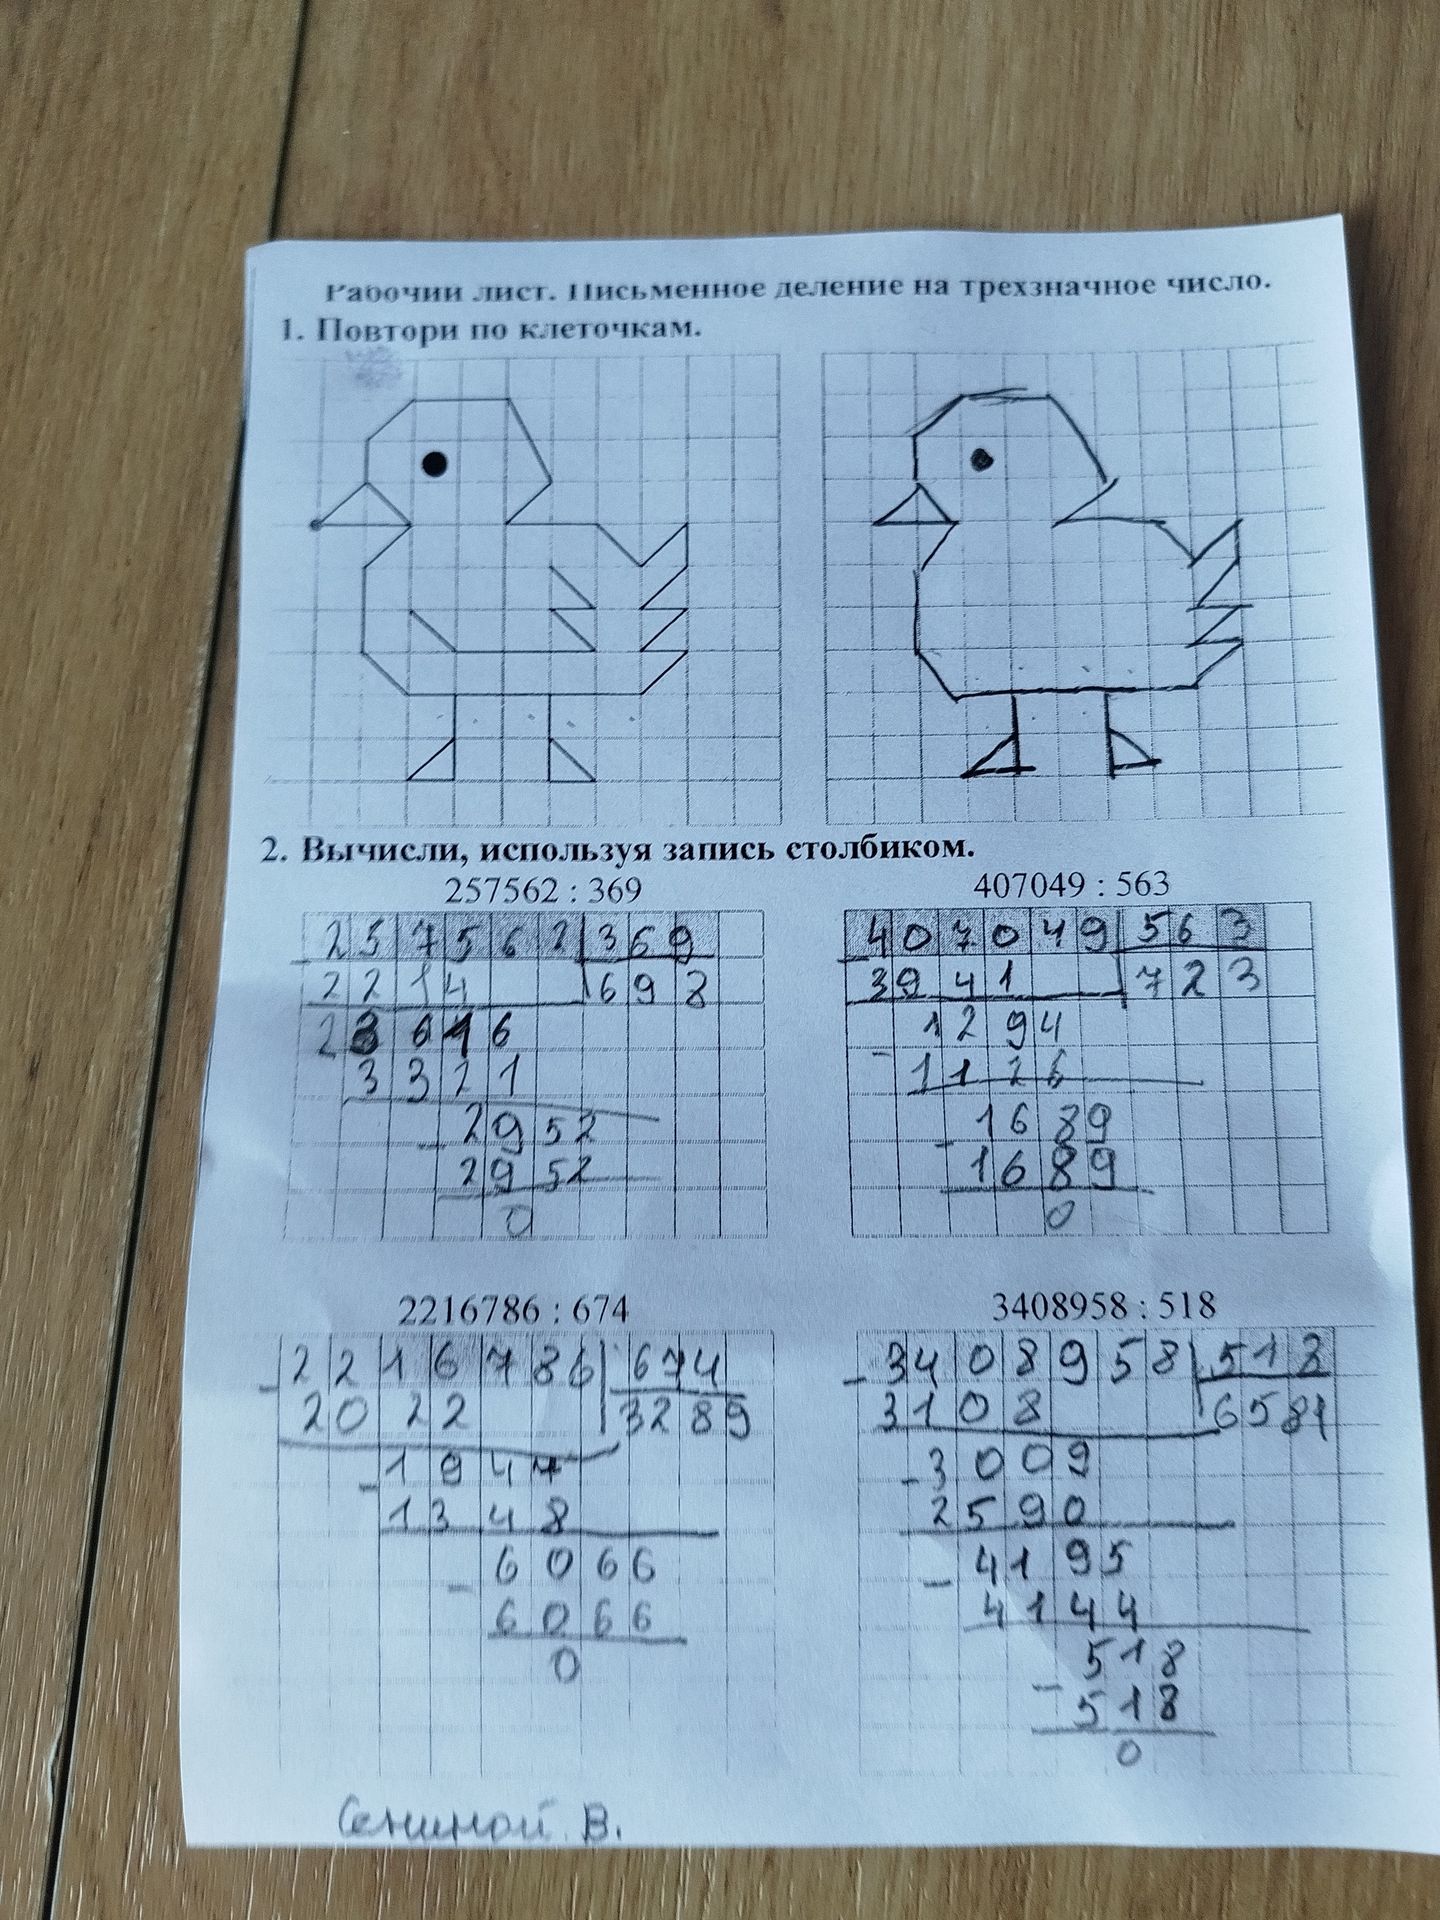 Рабочий лист. Письменное деление на трехзначное число.
1. Повтори по клеточкам.
2. Вычисли, используя запись столбиком.
257562 : 369
257562 369
2214 698
3616
3321
2952
2952
0
407049 : 563
407049 563
3941 723
1294
1126
1689
1689
0
2216786 : 674
2216786 674
2022 3289
1947
1348
6066
6066
0
3408958 : 518
3408958 518
3108 6581
3009
2590
4195
4144
518
518
0
В.